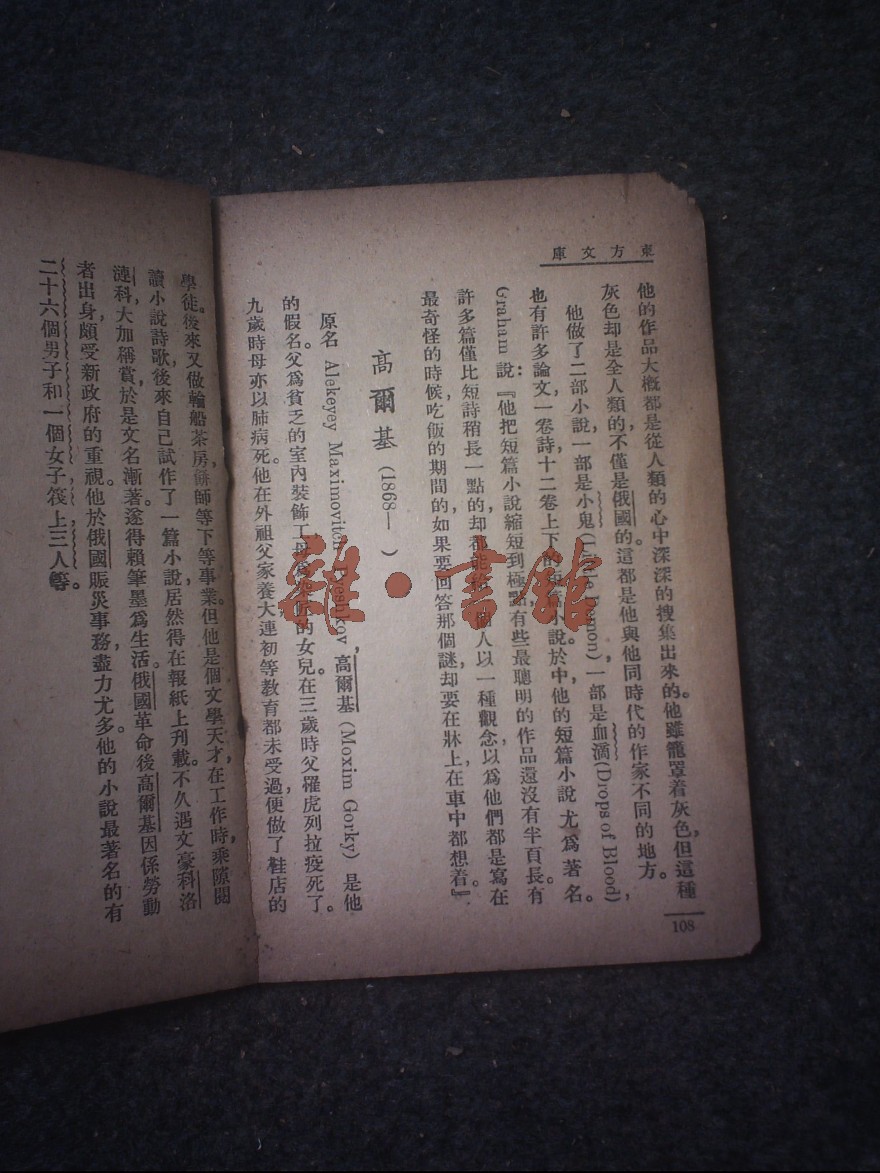 東方文庫
108
他的作品大槪都是從人類的心中深深的搜集出來的。他雖籠罩着灰色，但這種
灰色却是全人類的，不僅是俄國的。這都是他與他同時代的作家不同的地方。
他做了二部小說，一部是小鬼(Little Demon)，一部是血滴(Drops of Blood)，
也有許多論文，一卷詩十二卷上下的短篇小說。於中他的短篇小說尤爲著名。
Graham 說：『他把短篇小說縮短到極點，有些最聰明的作品還沒有半頁長。有
許多篇僅比短詩稍長一點的，却都能給個人以一種觀念，以爲他們都是寫在
最奇怪的時候，吃飯的期間的，如果要回答那個謎，却要在牀上，在車中都想着。』
高爾基 (1868— )
原名 Alekeyey Maximovitch Pyeshkov，高爾基(Moxim Gorky)是他
的假名。父爲貧乏的室內裝飾工，母爲染匠的女兒。在三歲時父罹虎列拉疫死了。
九歲時母亦以肺病死。他在外祖父家養大，連初等教育都未受過，便做了鞋店的
學徒。後來又做輪船茶房餅師等下等事業。但他是個文學天才，在工作時，乘隙閱
讀小說詩歌，後來自己試作了一篇小說，居然得在報紙上刊載。不久遇文豪科洛
漣科，大加稱賞，於是文名漸著。遂得賴筆墨爲生活。俄國革命後，高爾基因係勞動
者出身，頗受新政府的重視。他於俄國賑災事務盡力尤多。他的小說最著名的有
二十六個男子和一個女子，筏上，三人等。
雜·書館